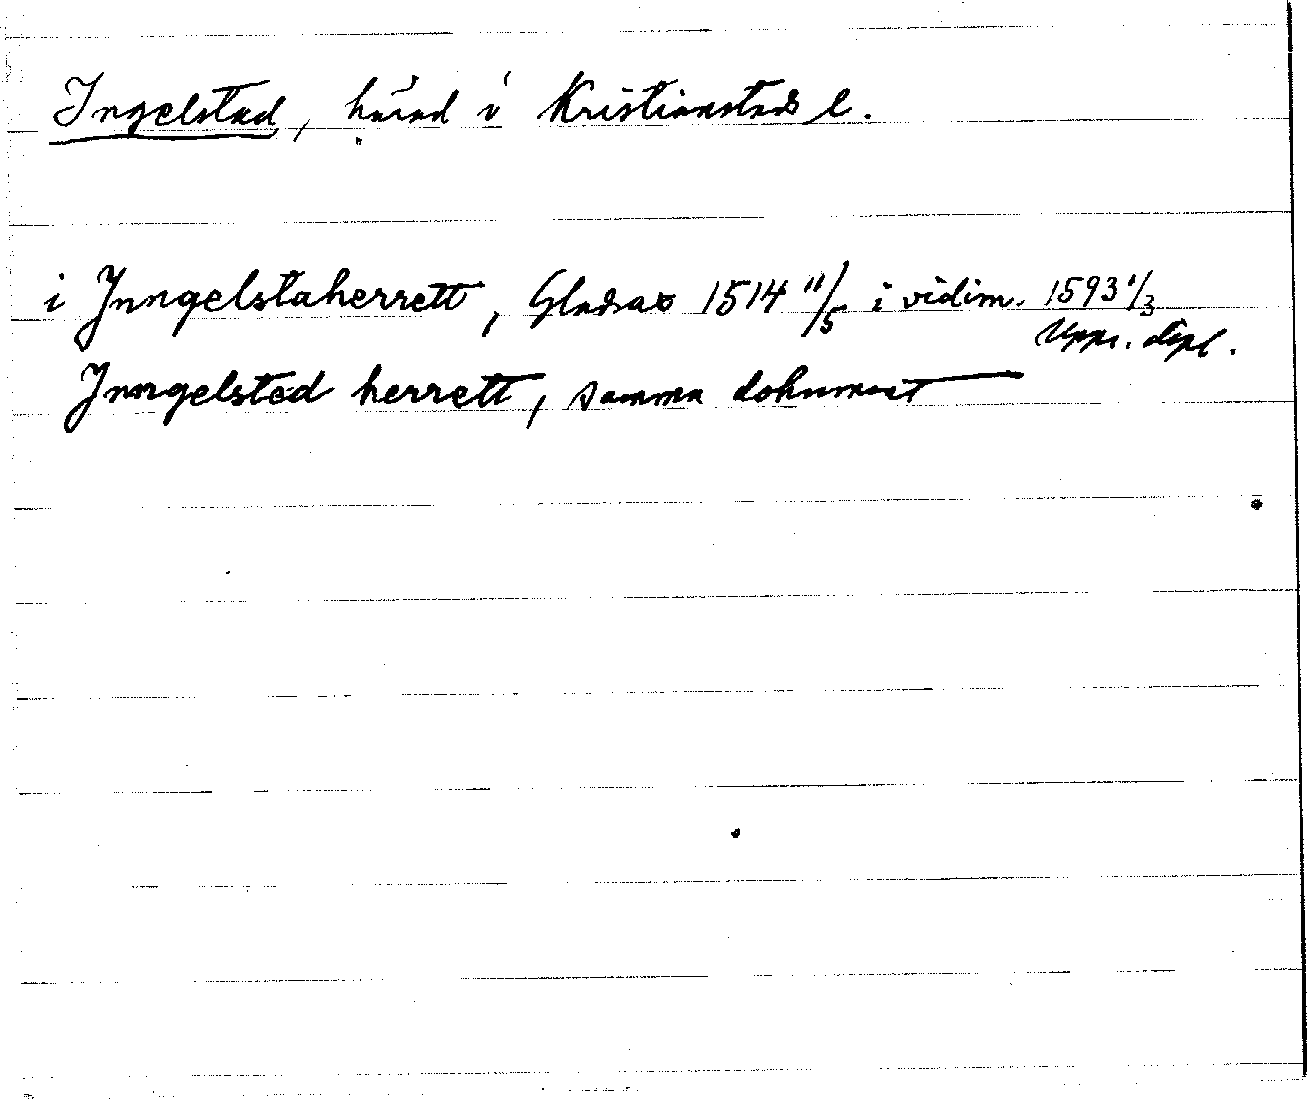 Ingelstad, härad i Kristianstads l.
i Jnngelstaherrett, Gladsax 1514 11/5 i vidim. 1593 1/3
Uppr. dipl.
Jnngelsted herrett, samma dokument